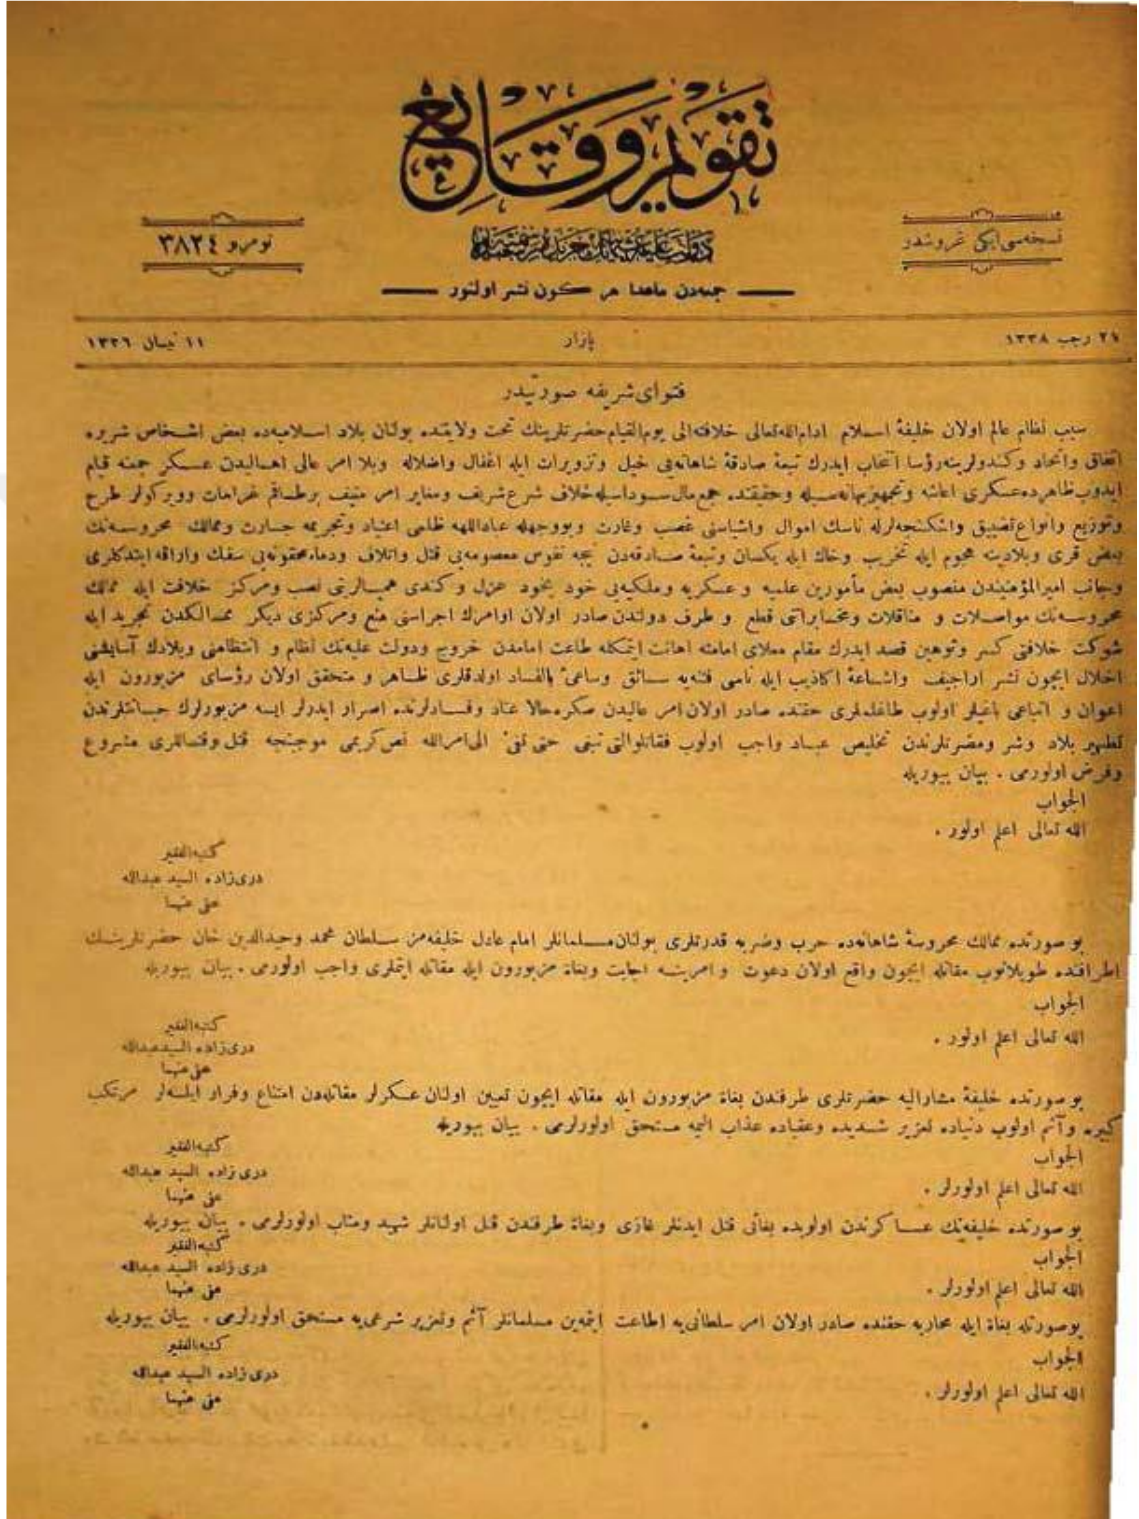 تقویم وقایع
نسخه‌سی ایکی غروشدر
نومرو ٣٨٢٤
جمعه‌دن ماعدا هر كون نشر اولنور
٢١ رجب ١٣٣٨
پازار
١١ نیسان ١٣٣٦
فتوای شریفه صورتیدر
سبب نظام عالم اولان خلیفهٔ اسلام ادام‌الله‌تعالی خلافته‌الی یوم‌القیام حضرتلرینك تحت ولایتنده بولنان بلاد اسلامیه‌ده بعض اشخاص شریره
اتفاق واتحاد وكندولرینه رؤسا انتخاب ایدرك تبعهٔ صادقهٔ شاهانه‌یی حیل وتزویرات ایله اغفال واضلاله وبلا امر عالی اهالیدن عسكر جمعنه قیام
ایدوب ظاهرده عسكری اعاشه وتجهیز بهانه‌سیله وحقیقتده جمع مال سوداسیله خلاف شرع شریف ومغایر امر منیف برطاقم غرامات وویركولر طرح
وتوزیع وانواع تضییق واشكنجه‌لرله ناسك اموال واشیاسنی غصب وغارت وبووجهله عبادالله ظلمی اعتیاد وتجریمه جسارت وممالك محروسه‌نك
بعض قری وبلادینه هجوم ایله تخریب وخاك ایله یكسان وتبعهٔ صادقه‌دن نیجه نفوس معصومه‌یی قتل واتلاف ودماء محقونه‌یی سفك واراقه ایتدكلری
وجانب امیرالمؤمنیندن منصوب بعض مأمورین علمیه و عسكریه وملكیه‌یی خود بخود عزل و كندی همپالرینی نصب ومركز خلافت ایله ممالك
محروسه‌نك مواصلات و مناقلات ومخابراتنی قطع و طرف دولتدن صادر اولان اوامرك اجراسنی منع ومركزی دیكر ممالكدن تجرید ایله
شوكت خلافتی كسر وتوهین قصد ایدرك مقام معلای امامته اهانت ایتمكله طاعت امامدن خروج ودولت علیه‌نك نظام و انتظامنی وبلادك آسایشنی
اخلال ایچون نشر اراجیف واشاعهٔ اكاذیب ایله ناسی فتنه‌یه سائق وساعیٔ بالفساد اولدقلری ظاهر و متحقق اولان رؤسای مزبورون ایله
اعوان و اتباعی باغیلر اولوب طاغیلمه‌لری حقنده صادر اولان امر عالیدن صكره حالا عناد وفسادلرنده اصرار ایدرلر ایسه مزبورلرك خباثتلرندن
تطهیر بلاد وشر ومضرتلرندن تخلیص عباد واجب اولوب فقاتلوالتی تبغی حتی تفیٔ الی‌امرالله نص كریمی موجبنجه قتل وقتاللری مشروع
وفرض اولورمی . بیان بیوریله
الجواب
الله تعالی اعلم اولور .
كتبه‌الفقیر
دری‌زاده السید عبدالله
عفی عنهما
بو صورتده ممالك محروسهٔ شاهانه‌ده حرب وضربه قدرتلری بولنان مسلمانلر امام عادل خلیفه‌مز سلطان محمد وحیدالدین خان حضرتلرینك
اطرافنده طوپلانوب مقاتله ایچون واقع اولان دعوت و امرینه اجابت وبغاة مزبورون ایله مقاتله ایتملری واجب اولورمی . بیان بیوریله
الجواب
الله تعالی اعلم اولور .
كتبه‌الفقیر
دری‌زاده السید عبدالله
عفی عنهما
بو صورتده خلیفهٔ مشارالیه حضرتلری طرفندن بغاة مزبورون ایله مقاتله ایچون تعیین اولنان عسكرلر مقاتله‌دن امتناع وفرار ایلسه‌لر مرتكب
كبیره وآثم اولوب دنیاده تعزیر شدیده وعقباده عذاب الیمه مستحق اولورلرمی . بیان بیوریله
الجواب
الله تعالی اعلم اولورلر .
كتبه‌الفقیر
دری زاده السید عبدالله
عفی عنهما
بو صورتده خلیفه‌نك عساكرندن اولوبده بغاتی قتل ایدنلر غازی وبغاة طرفندن قتل اولنانلر شهید ومثاب اولورلرمی . بیان بیوریله
الجواب
الله تعالی اعلم اولورلر .
كتبه‌الفقیر
دری زاده السید عبدالله
عفی عنهما
بوصورتله بغاة ایله محاربه حقنده صادر اولان امر سلطانی‌یه اطاعت ایتمه‌ین مسلمانلر آثم وتعزیر شرعی‌یه مستحق اولورلرمی . بیان بیوریله
الجواب
الله تعالی اعلم اولورلر .
كتبه‌الفقیر
دری زاده السید عبدالله
عفی عنهما